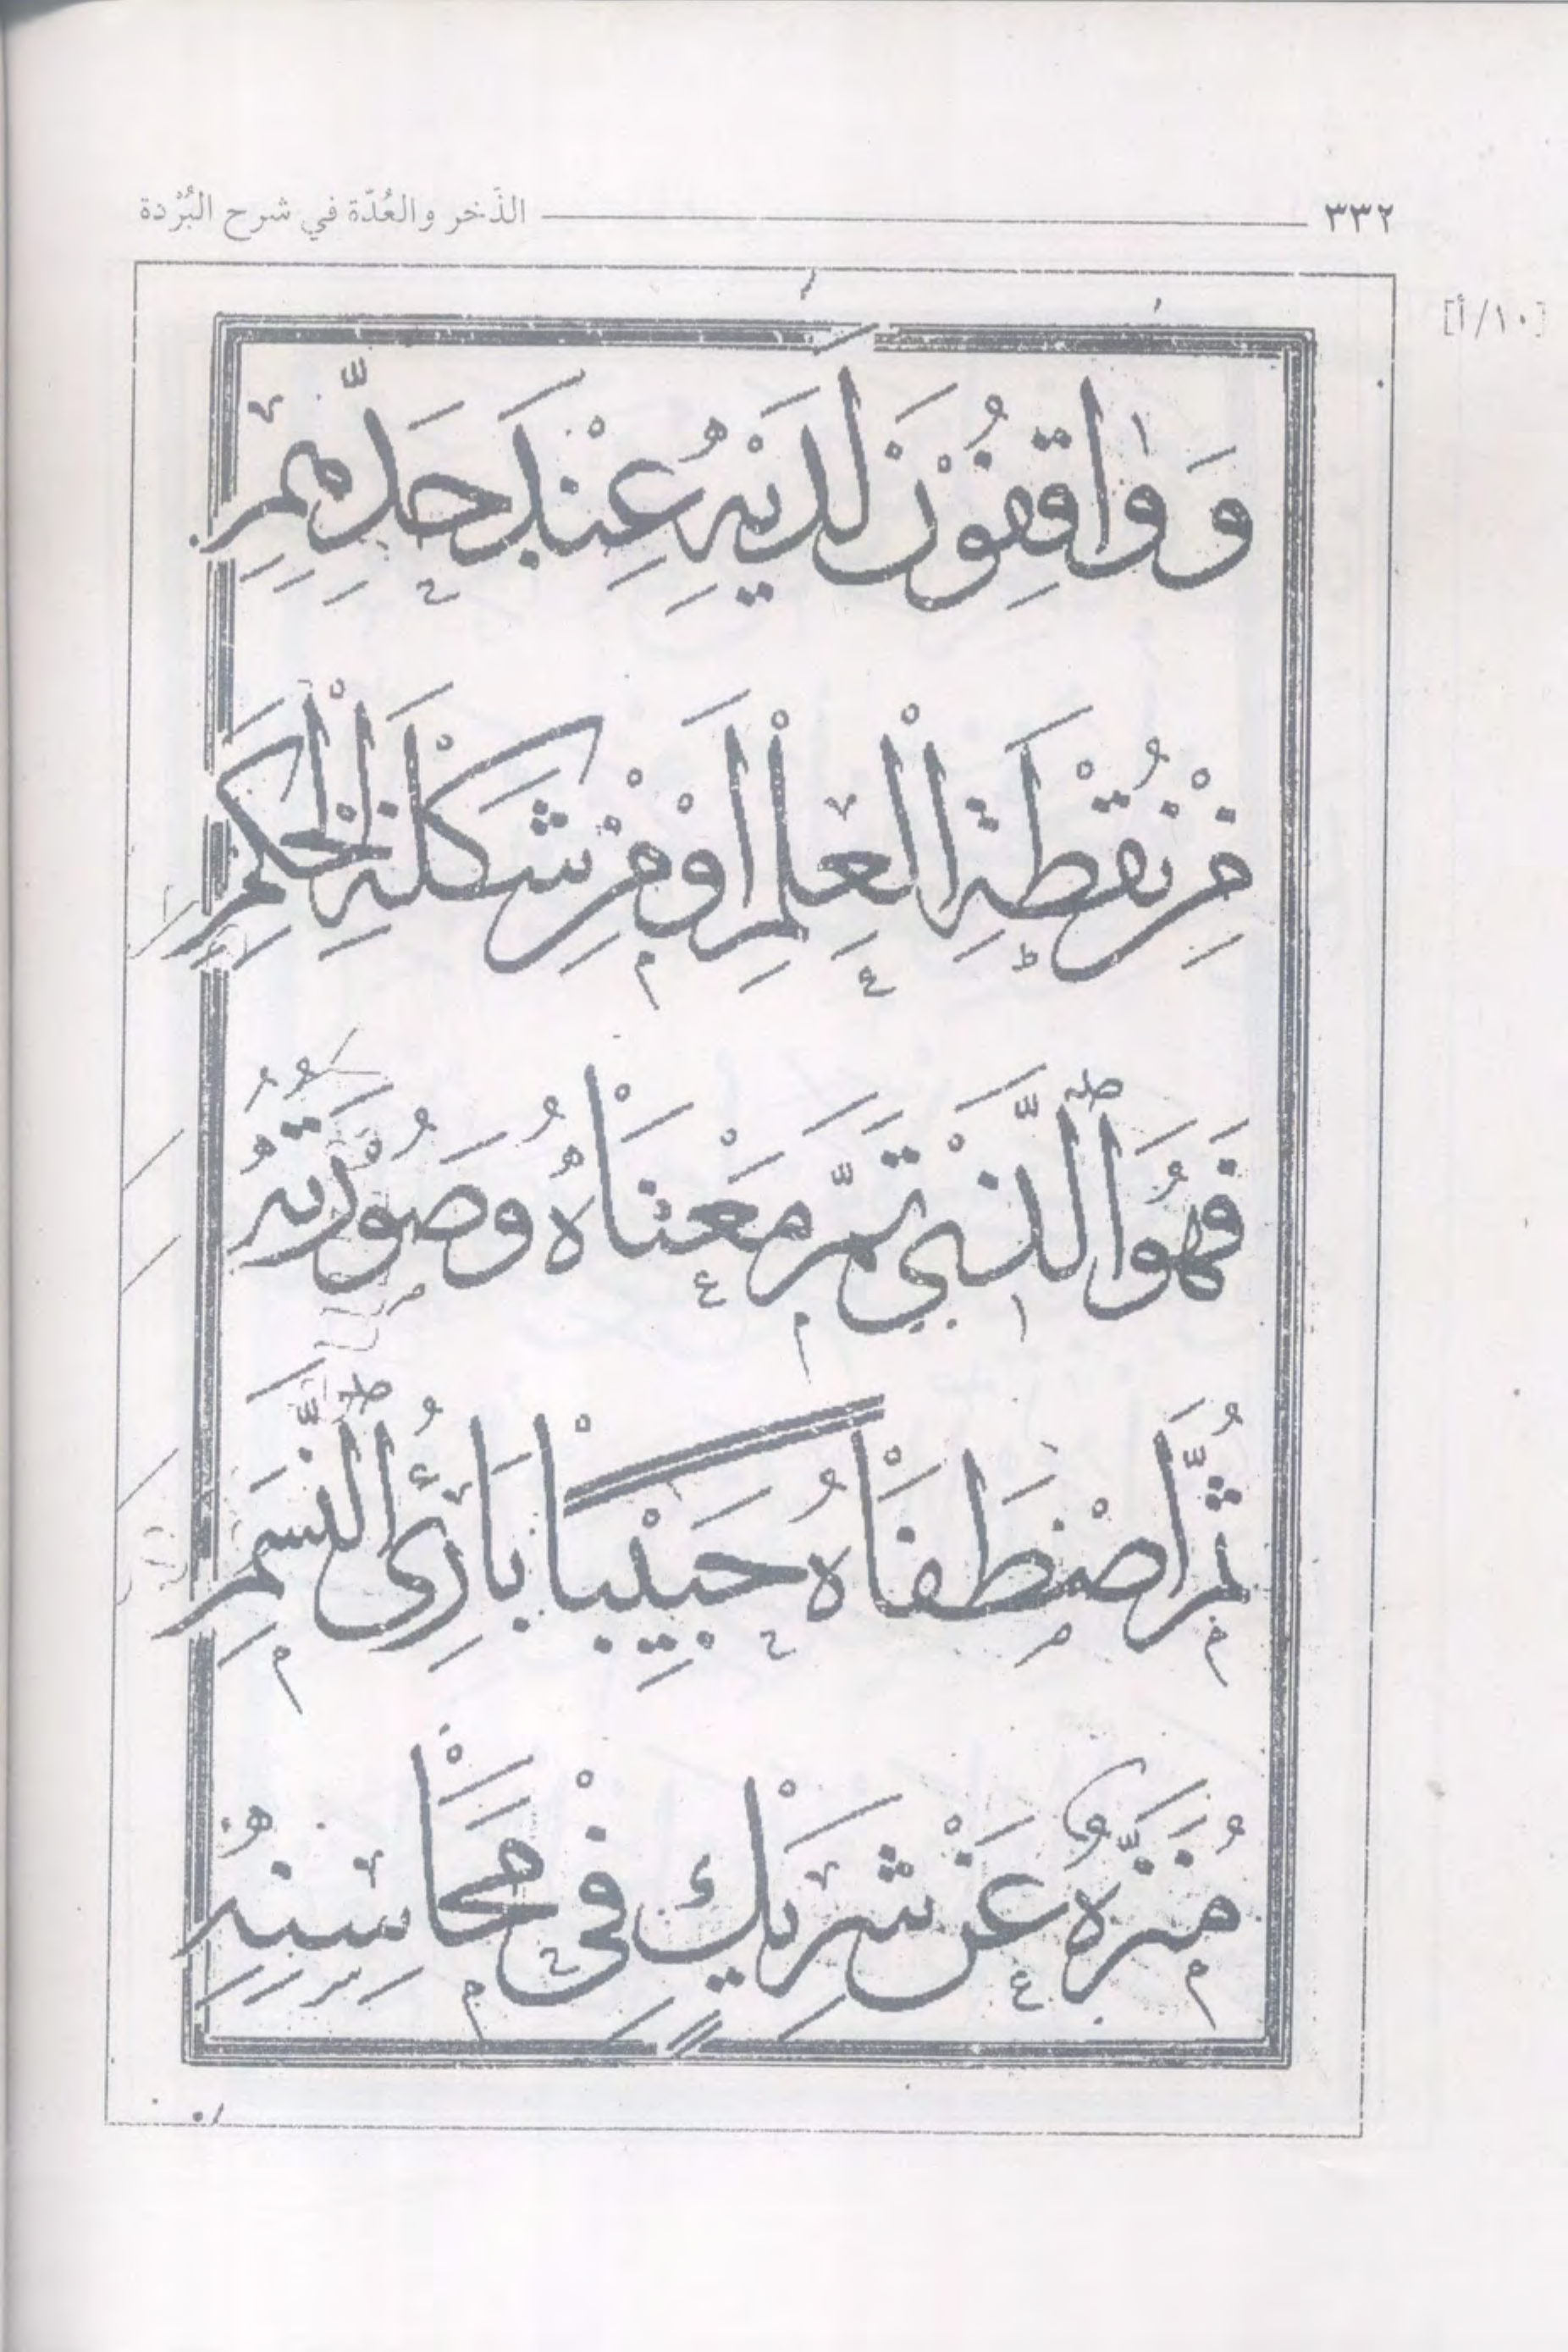 ٣٣٢ الذّخر والعُدّة في شرح البُرْدة
[١٠/أ]
وَوَاقِفُوْنَ لَدَيْهِ عِنْدَ حَدِّهِمِ
مِنْ نُقْطَةِ الْعِلْمِ اَوْ مِنْ شَكْلَةِ الْحِكَمِ
فَهُوَ الَّذِي تَمَّ مَعْنَاهُ وَصُوْرَتُهُ
ثُمَّ اصْطَفَاهُ حَبِيْبًا بَارِئُ النَّسَمِ
مُنَزَّهٌ عَنْ شَرِيْكٍ فِيْ مَحَاسِنِهِ